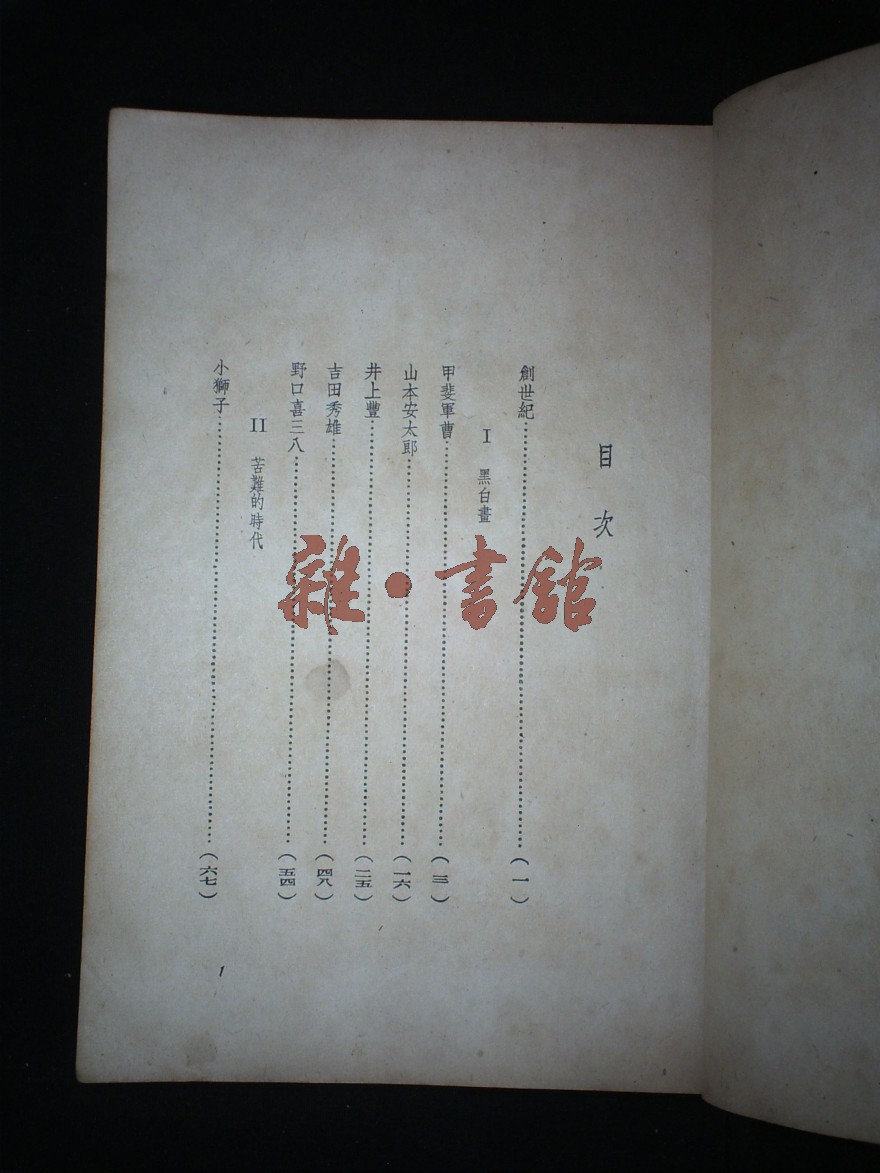 目次
創世紀……(一)
I 黑白畫
甲斐軍曹……(三)
山本安太郎……(一六)
井上豐……(二五)
吉田秀雄……(四八)
野口喜三八……(五四)
II 苦難的時代
小獅子……(六七)
1
雜·書館